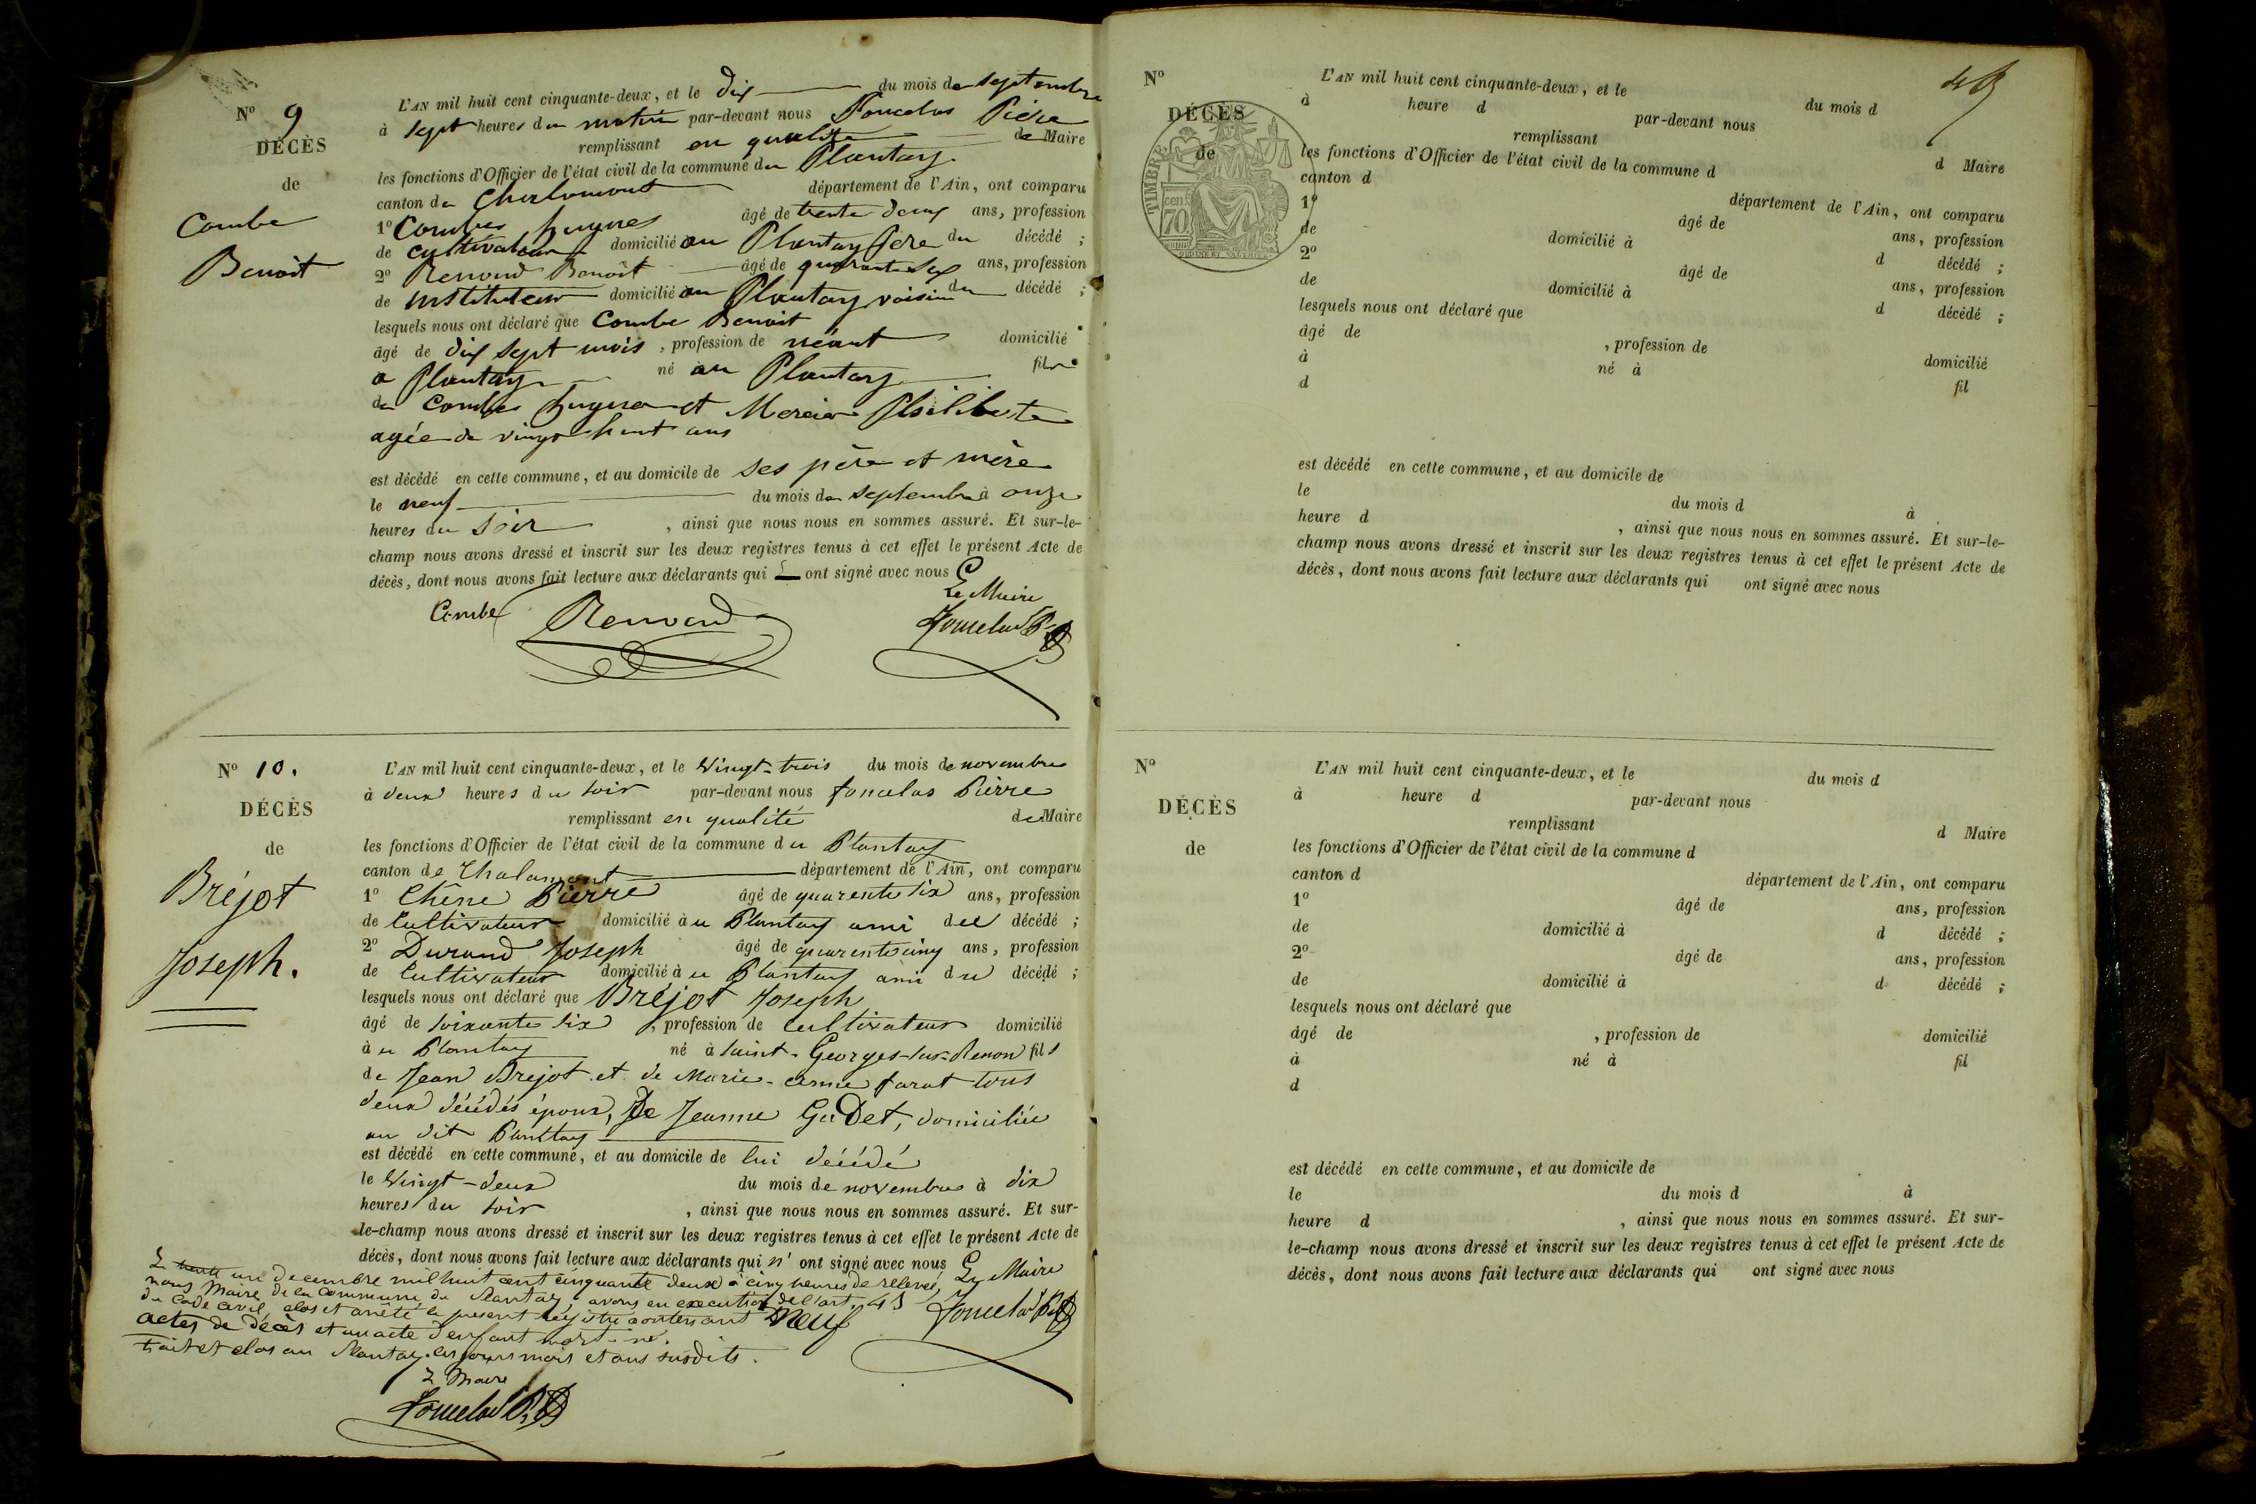 N° 9
DÉCÈS
de
Combe
Benoit
L'AN mil huit cent cinquante-deux, et le dix du mois de septembre
à sept heures du matin par-devant nous Poncelas Pière
remplissant en qualité de Maire
les fonctions d'Officier de l'état civil de la commune du Plantay
canton de Chalamont département de l'Ain, ont comparu
1° Combes hugues âgé de trente deux ans, profession
de cultivateur domicilié au Plantay père du décédé ;
2° Renoud Benoit âgé de quarante six ans, profession
de instituteur domicilié au Plantay voisin du décédé ;
lesquels nous ont déclaré que Combe Benoit
âgé de dix sept mois , profession de néant domicilié
a Plantay né au Plantay fils
de Combes hugues et Mercier Philiberte
agée de vingt huit ans
est décédé en cette commune, et au domicile de ses père et mère
le neuf du mois de septembre à onze
heures du soir , ainsi que nous nous en sommes assuré. Et sur-le-
champ nous avons dressé et inscrit sur les deux registres tenus à cet effet le présent Acte de
décès, dont nous avons fait lecture aux déclarants qui ont signé avec nous
Le Maire
Combe Renoud
N° 10.
DÉCÈS
de
Bréjot
Joseph.
L'AN mil huit cent cinquante-deux, et le Vingt-trois du mois de novembre
à deux heures du soir par-devant nous foncelas Pierre
remplissant en qualité de Maire
les fonctions d'Officier de l'état civil de la commune du Plantay
canton de Chalamont département de l'Ain, ont comparu
1° Chêne Pierre âgé de quarente six ans, profession
de Cultivateur domicilié àu Plantay ami du décédé ;
2° Durand Joseph âgé de quarente cinq ans, profession
de Cultivateur domicilié àu Plantay ami du décédé ;
lesquels nous ont déclaré que Bréjot Joseph
âgé de soixante six , profession de Cultivateur domicilié
àu Plantay né à saint-Georges-sur-Renon fils
de Jean Bréjot et de Marie-anne farat tous
deux décédés époux, de Jeanne GuDet, domiciliée
au dit Planttay
est décédé en cette commune, et au domicile de lui décédé
le Vingt-deux du mois de novembre à dix
heures du soir , ainsi que nous nous en sommes assuré. Et sur-
le-champ nous avons dressé et inscrit sur les deux registres tenus à cet effet le présent Acte de
décès, dont nous avons fait lecture aux déclarants qui n'ont signé avec nous
Le Maire
L trente un Decembre mil huit cent cinquante deux à cinq heures de relevée
nous Maire de la Commune du Plantay avons en execution de l'art. 43
du Code Civil, clos et arrêté le present registre contenant neuf
actes de décès et un acte d'enfant mort-né.
fait et clos au Plantay les jours mois et ans susdits.
L Maire
N°
DÉCÈS
de
TIMBRE
cent.
70
L'AN mil huit cent cinquante-deux, et le du mois d
à heure d par-devant nous
remplissant d Maire
les fonctions d'Officier de l'état civil de la commune d
canton d département de l'Ain, ont comparu
1° âgé de ans, profession
de domicilié à d décédé ;
2° âgé de ans, profession
de domicilié à d décédé ;
lesquels nous ont déclaré que
âgé de , profession de domicilié
à né à fil
d
est décédé en cette commune, et au domicile de
le du mois d à
heure d , ainsi que nous nous en sommes assuré. Et sur-le-
champ nous avons dressé et inscrit sur les deux registres tenus à cet effet le présent Acte de
décès, dont nous avons fait lecture aux déclarants qui ont signé avec nous
N°
DÉCÈS
de
L'AN mil huit cent cinquante-deux, et le du mois d
à heure d par-devant nous
remplissant d Maire
les fonctions d'Officier de l'état civil de la commune d
canton d département de l'Ain, ont comparu
1° âgé de ans, profession
de domicilié à d décédé ;
2° âgé de ans, profession
de domicilié à d décédé ;
lesquels nous ont déclaré que
âgé de , profession de domicilié
à né à fil
d
est décédé en cette commune, et au domicile de
le du mois d à
heure d , ainsi que nous nous en sommes assuré. Et sur-
le-champ nous avons dressé et inscrit sur les deux registres tenus à cet effet le présent Acte de
décès, dont nous avons fait lecture aux déclarants qui ont signé avec nous